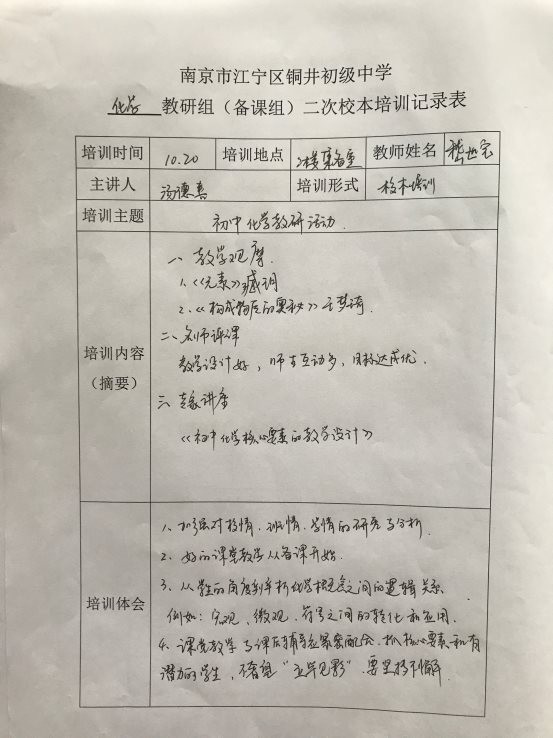 南京市江宁区铜井初级中学
化学 教研组（备课组）二次校本培训记录表
培训时间 10.20 培训地点 2楼集备室 教师姓名
主讲人 汤德喜 培训形式 校本培训
培训主题 初中化学教研活动.
培训内容
（摘要）
一、教学观摩.
1、《元素》臧玥
2、《构成物质的奥秘》王梦琦
二、名师评课
教学设计好，师生互动多，目标达成优.
三、专家讲座
《初中化学核心要素的教学设计》
培训体会
1、加强对校情、班情、学情的研究与分析
2、好的课堂教学从备课开始.
3、从学生的角度剖析化学概念之间的逻辑关系.
例如：宏观、微观、符号之间的转化和应用.
4、课堂教学与课后辅导应紧密配合，抓核心要素和有
潜力的学生，不奢望“立竿见影”，要坚持不懈.